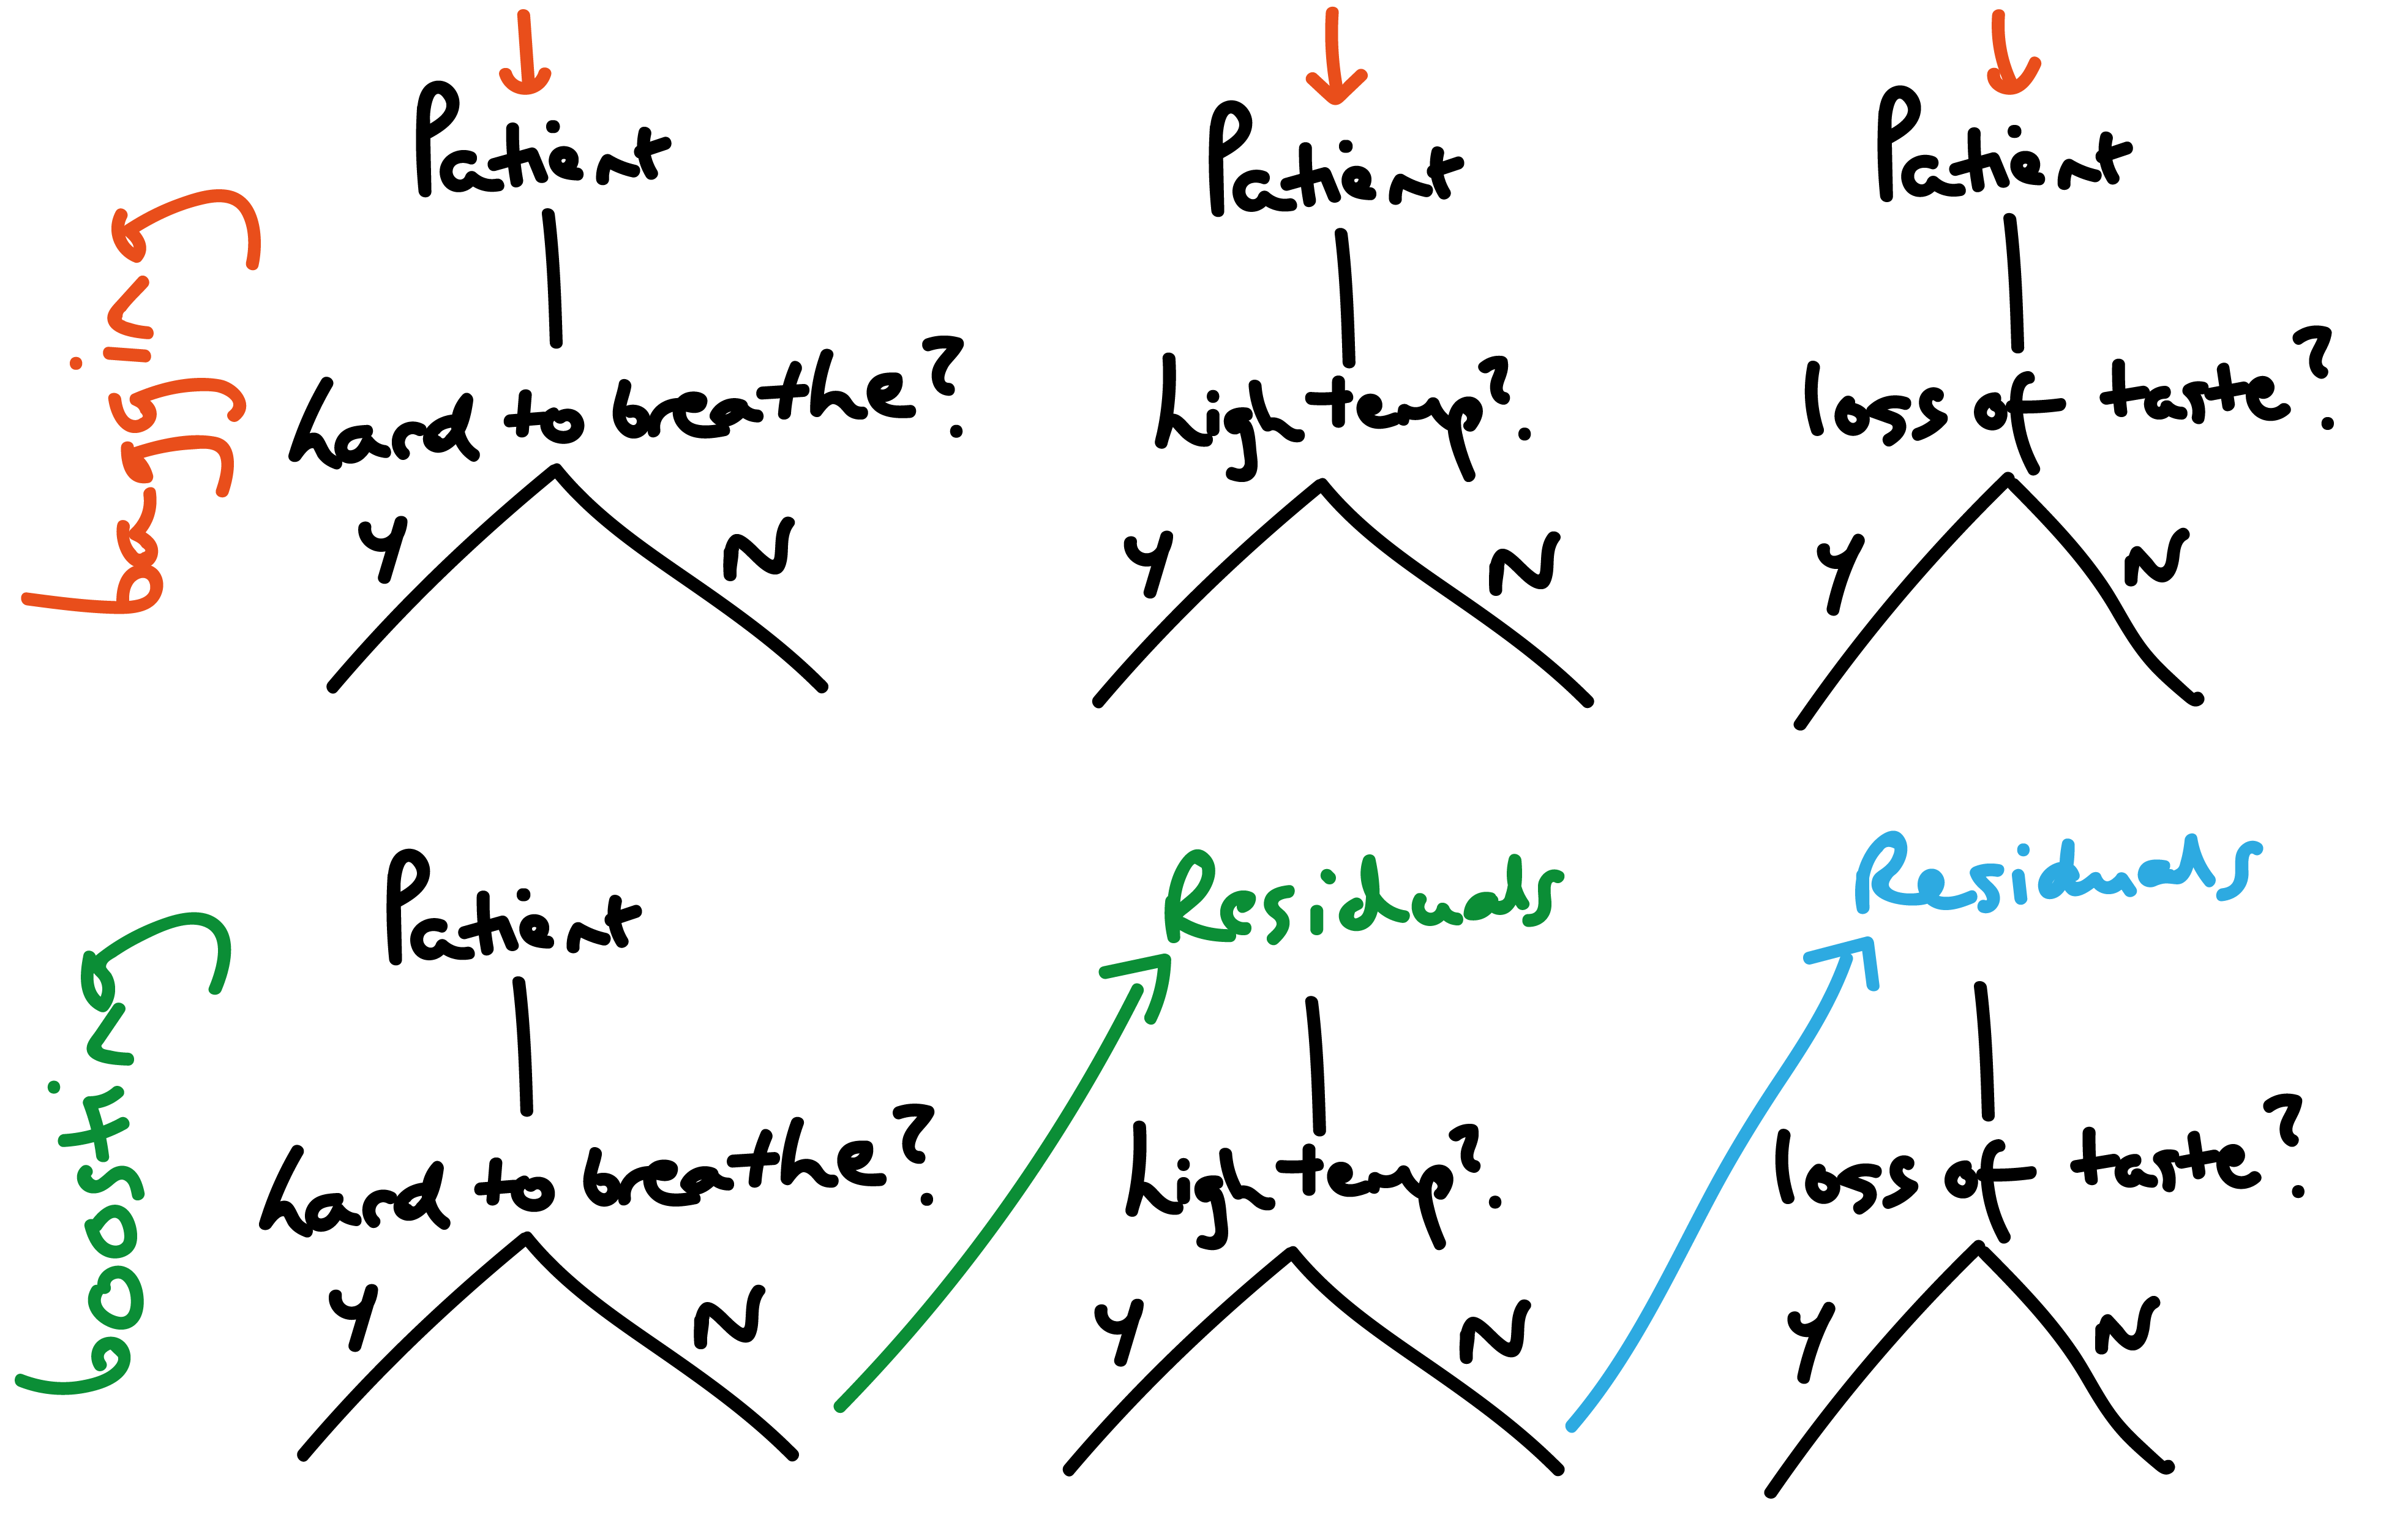 bagging
Patient
hard to breathe?
Y N
Patient
high temp?
Y N
Patient
loss of taste?
Y N
boosting
Patient
hard to breathe?
Y N
Residuals
high temp?
Y N
Residuals
loss of taste?
Y N